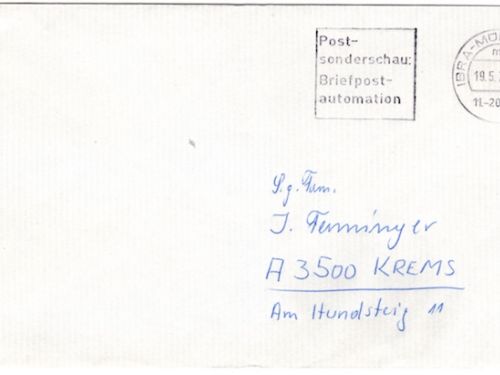 Post-
sonderschau:
Briefpost-
automation
IBRA-MÜ
19.5.
11.-20
S.g. Fam.
J. Fenninger
A 3500 KREMS
Am Hundsteig 11